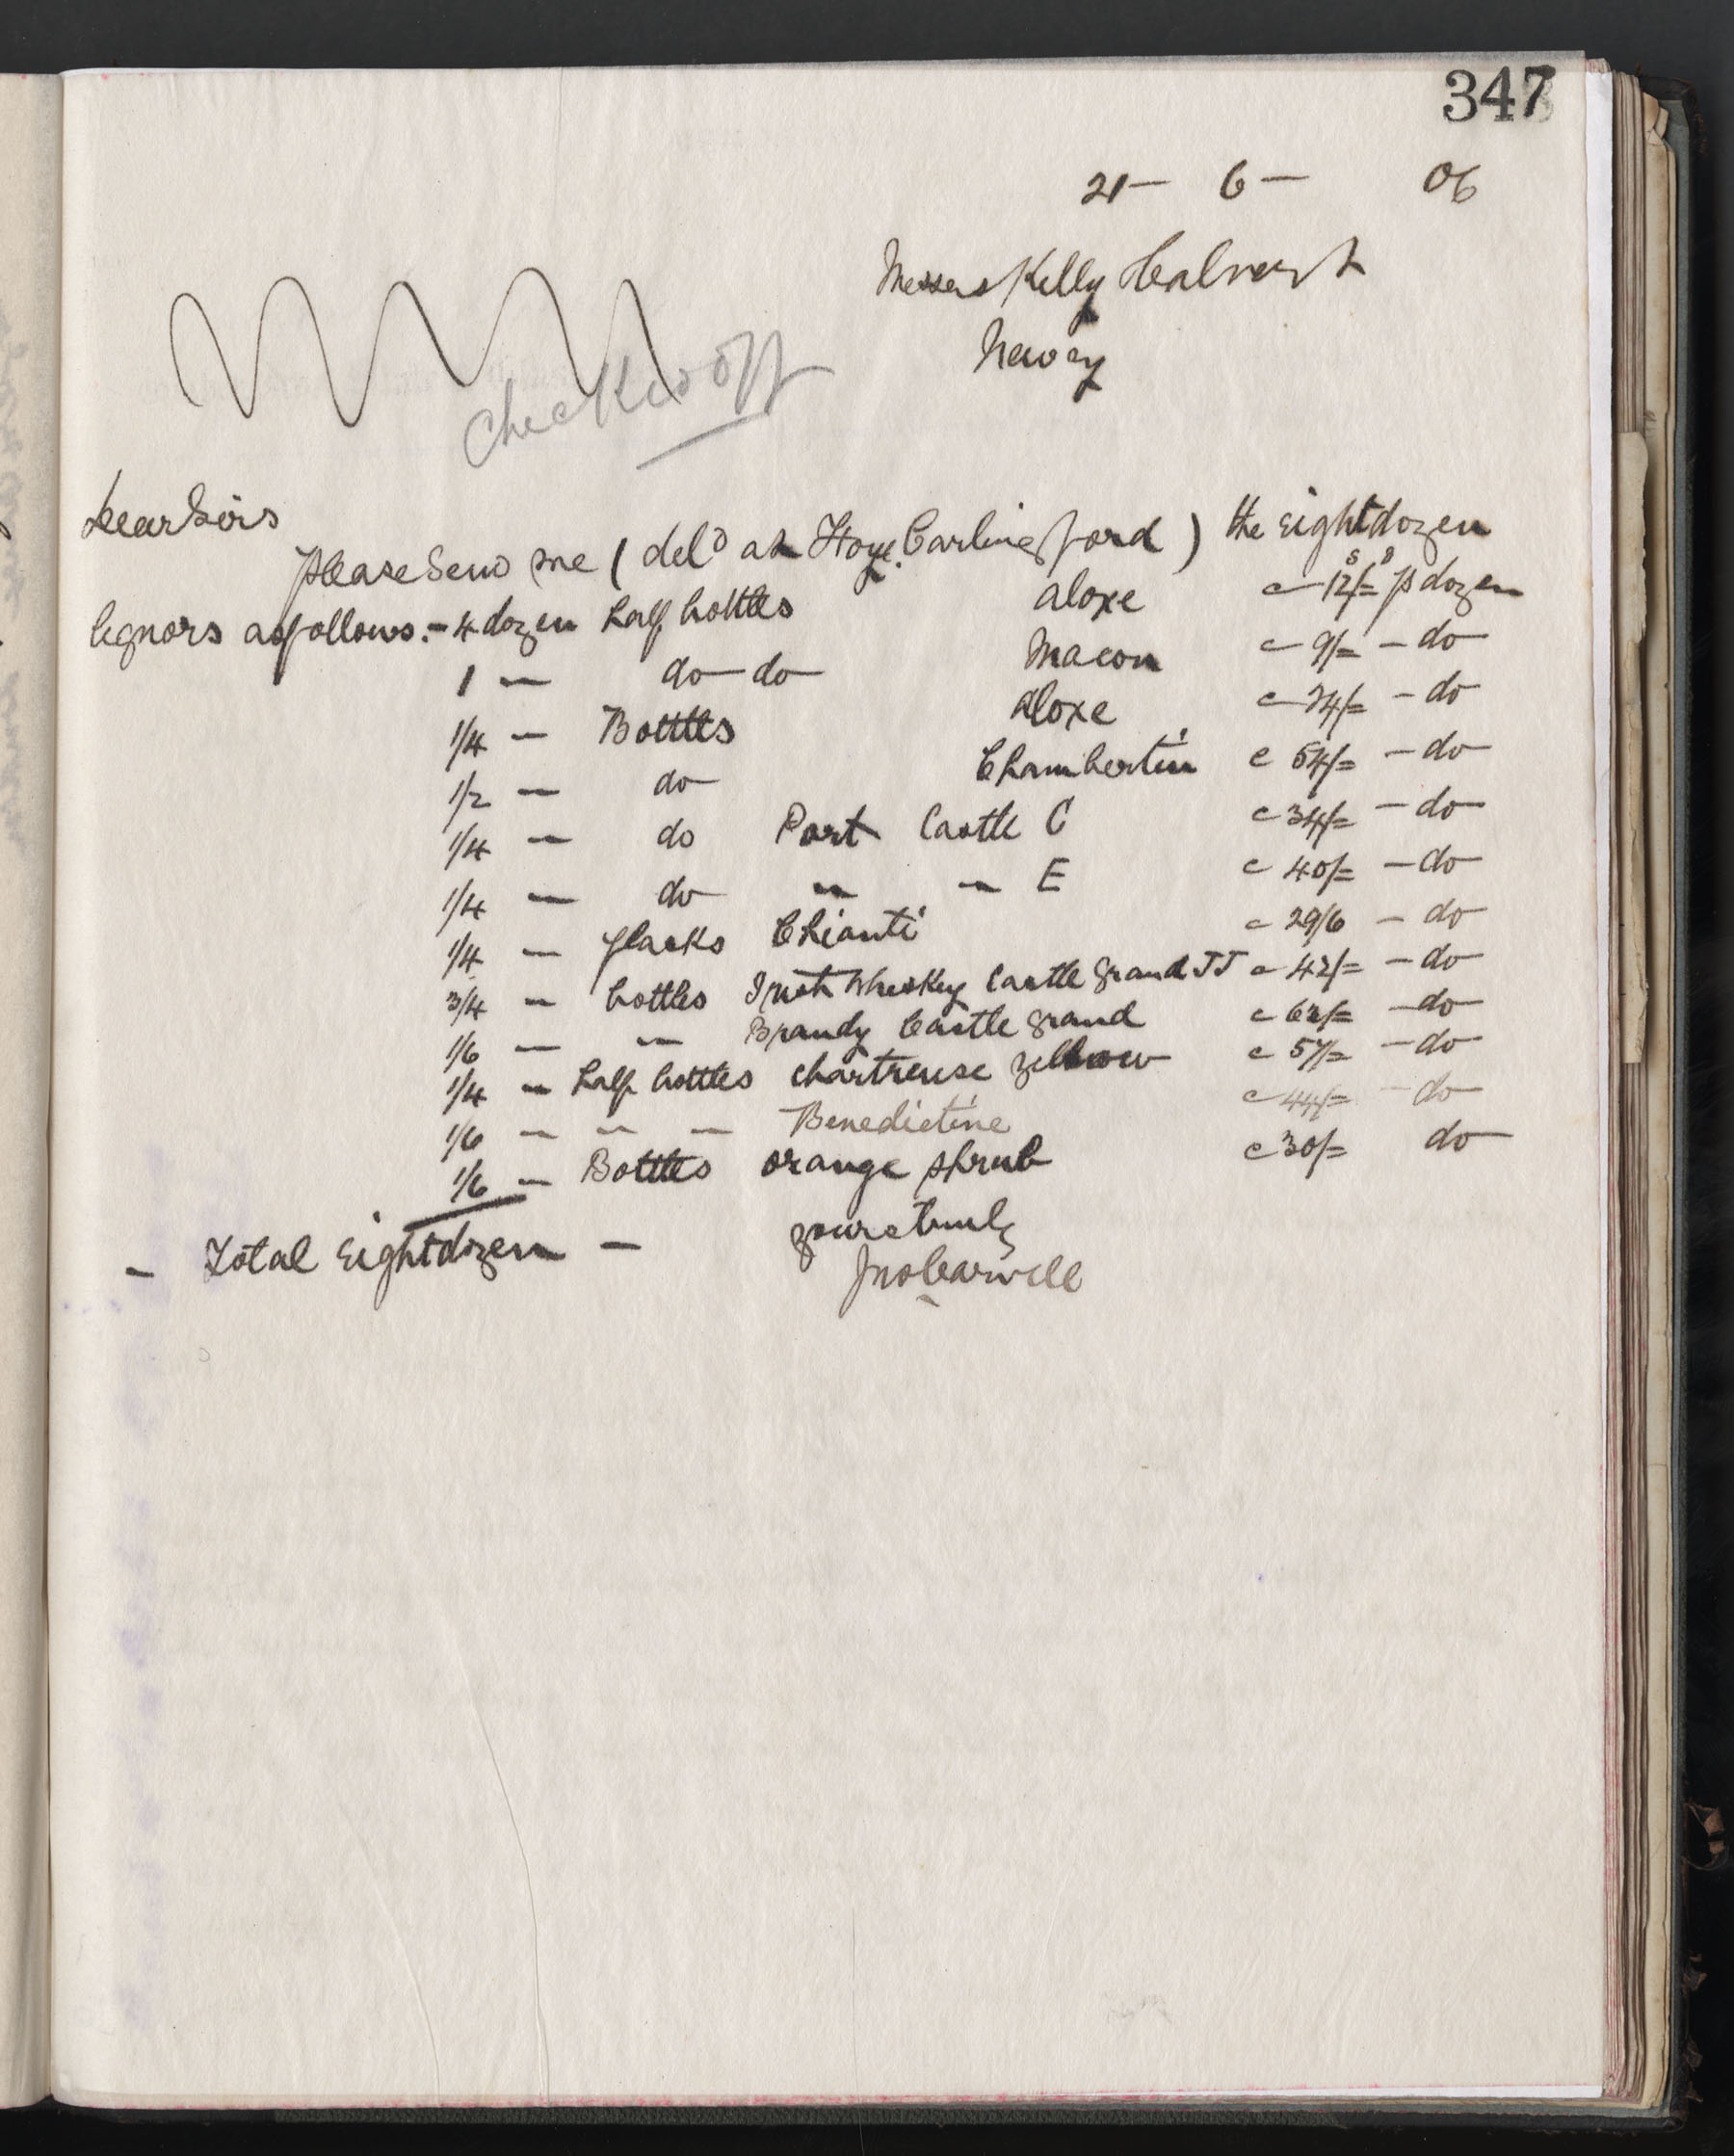 347
21 — 6 — 06
Messrs Kelly Calvert
Newry
Checked off
Dear Sirs
Please Send me ( deld at Carlingford ) the Eight dozen
liquors as follows:- 4 dozen half bottles aloxe @ 12/= p dozen
1 — do — do Macon @ 9/= — do
1/4 — Bottles aloxe @ 24/= — do
1/2 — do Chambertin @ 54/= — do
1/4 — do Port Castle C @ 34/= — do
1/4 — do " — E @ 40/= — do
1/4 — flasks Chianti @ 29/6 — do
3/4 — bottles Irish Whiskey Castle Grand JJ @ 42/= — do
1/6 — — Brandy Castle Grand @ 62/= — do
1/4 — half bottles Chartreuse yellow @ 57/= — do
1/6 — — — Benedictine @ 44/= — do
1/6 — Bottles orange shrub @ 30/= do
— Total Eight dozen —
yours truly
Jno Carvill